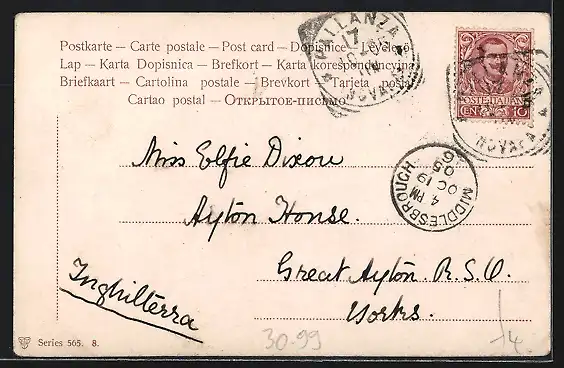 Postkarte – Carte postale – Post card – Dopisnice – Levelező
Lap – Karta Dopisnica – Brefkort – Karta korespondencyjna
Briefkaart – Cartolina postale – Brevkort – Tarjeta postal
Cartao postal – Открытое-письмо
PALLANZA
NOVARA
POSTE ITALIANE
CENT. 10
NOVARA
MIDDLESBROUGH
4 PM
OC 19
05
Miss Elfie Dixon
Ayton House.
Great Ayton. R.S.O.
Yorks.
Inghilterra
Series 565. 8.
30-99
14